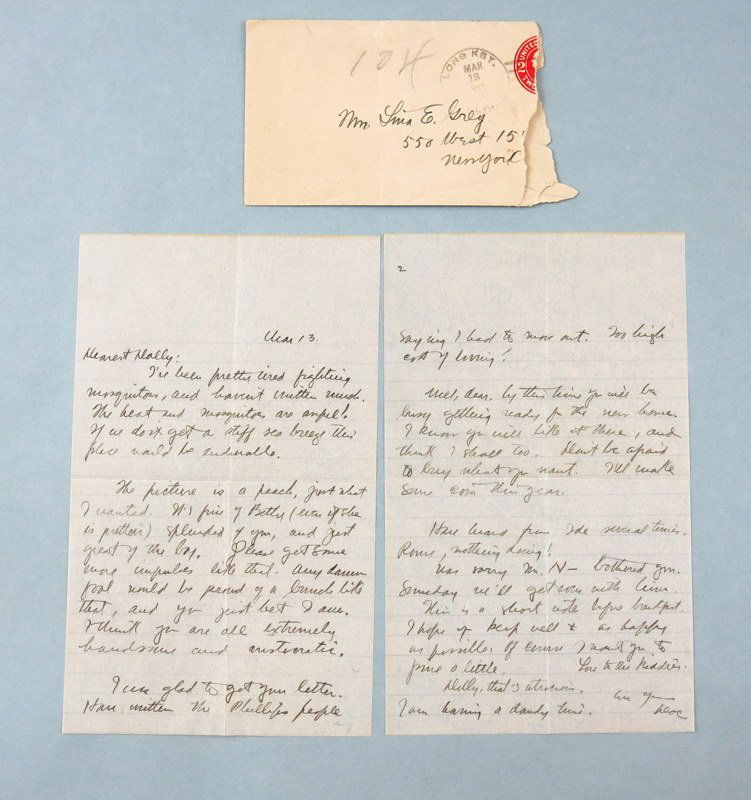 LONG KEY,
MAR
13
UNITED
Mrs. Lina E. Grey
550 West 15
New York
Mar 13.
Dearest Dolly:
I've been pretty tired fighting
mosquitoes, and haven't written much.
The heat and mosquitoes are awful!
If we don't get a stiff sea breeze this
place would be unlivable.
The picture is a peach, just what
I wanted. It's fine of Betty (even if she
is prettier) splendid of you, and just
great of the boy. Please get some
more impulses like that. Any damn
fool would be proud of a bunch like
that, and you just bet I am.
I think you are all extremely
handsome and aristocratic.
I am glad to get your letter.
Have written the Phillips people
2
saying I had to move out. Too high
cost of living!
Well, dear, by this time you will be
busy getting ready for the new home.
I know you will like it there, and
think I shall too. Don't be afraid
to buy what you want. I'll make
some coin this year.
Have heard from several times.
Rome, nothing doing!
Was sorry Mr. N— bothered you.
Someday we'll get even with him.
This is a short note before breakfast.
I hope you keep well & as happy
as possible. Of course I want you to
pine a little. Love to the Kiddies.
Dolly, that's atrocious.
I am having a dandy time.